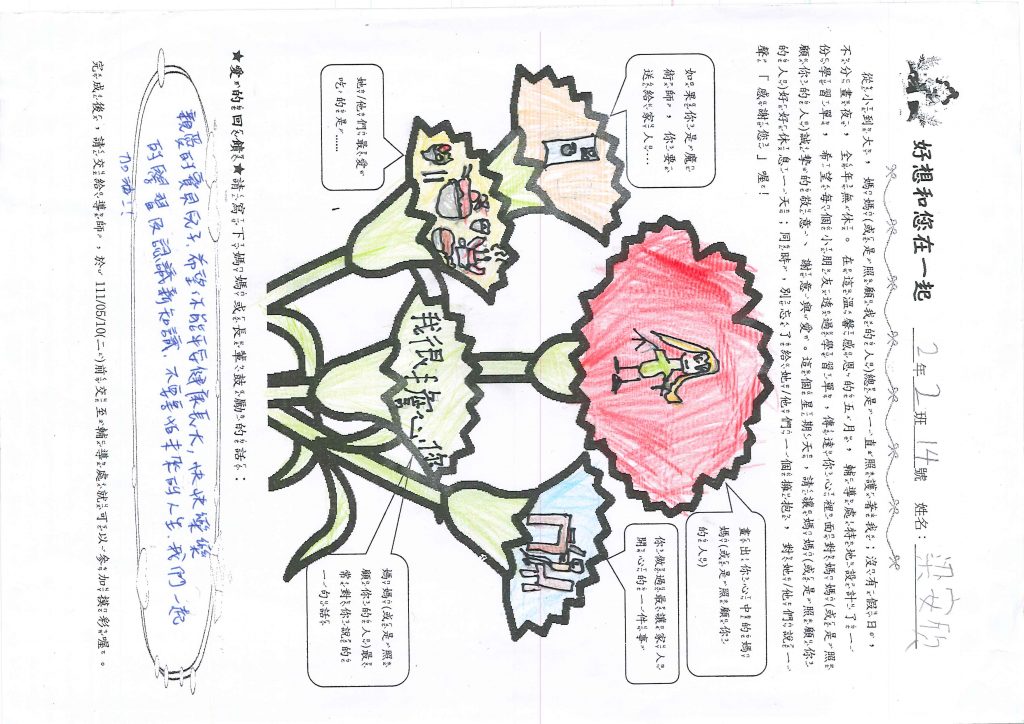 好想和您在一起 2年2班14號 姓名：梁安欣
從小到大，媽媽(或是照顧我的人)總是一直照護著我；沒有假日，
不分晝夜，全年無休。在這溫馨感恩的五月，輔導處特地設計了一
份學習單，希望每個小朋友透過學習單，傳達你心裡面對媽媽(或是照
顧你的人)誠摯的敬意、謝意與愛。這個星期天，請讓媽媽(或是照顧你
的人)好好休息一天；同時，別忘了給她/他們一個擁抱，對她/他們說一
聲「感謝您」喔！
如果你是魔
術師，你要
送給家人…
畫出你心中的媽
媽(或是照顧你
的人)
你做過最讓家人
開心的一件事
她/他們最愛
吃的是……
我很手
你
媽媽(或是照
顧你的人)最
常對你說的
一句話
★愛的回饋★請寫下媽媽或長輩鼓勵的話：
親愛的寶貝兒子，希望你能平安健康長大，快快樂樂
的學習及認識新知識，不要害怕未來的人生，我們一起
加油！！
完成後，請交給導師，於 111/05/10(二)前交至輔導處就可以參加摸彩喔。